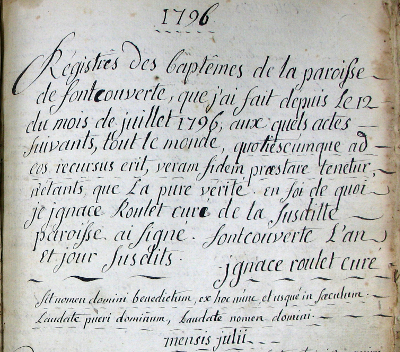 1796
Régistres des baptêmes de la paroisse
de fontcouverte, que j'ai fait depuis le 12
du mois de juillet 1796, aux quels actes
suivants, tout le monde, quotiescumque ad
eos recursus erit, veram fidem præstare tenetur,
n'etants, que la pure verité. en foi de quoi
je jgnace Roulet curé de la susditte
paroisse ai signé. fontcouverte L'an
Et jour susdits. jgnace roulet curé
sit nomen domini benedictum, ex hoc nunc, et usque in sæculum.
Laudate pueri dominum, Laudate nomen domini.
mensis julii